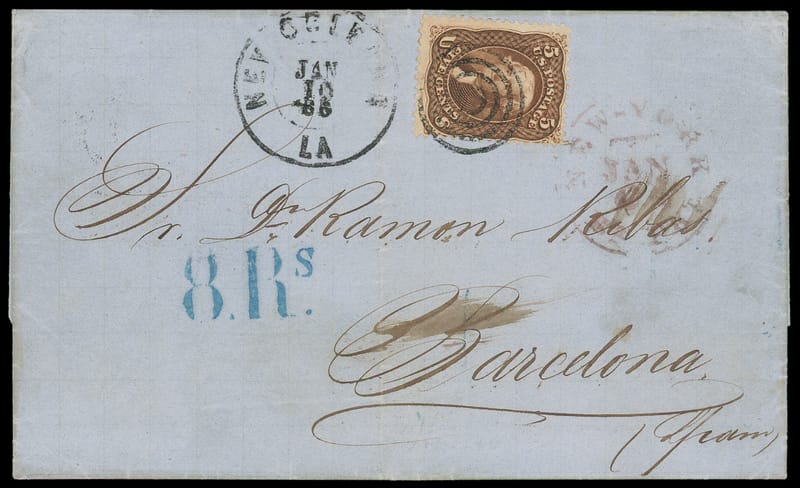 NEW ORLEANS
JAN
10
66
LA
U 5
5
U.S. POSTAGE
NEW-YORK
JAN
Sr. Dn. Ramon Ribas.
8.Rs.
Barcelona
(Spain)